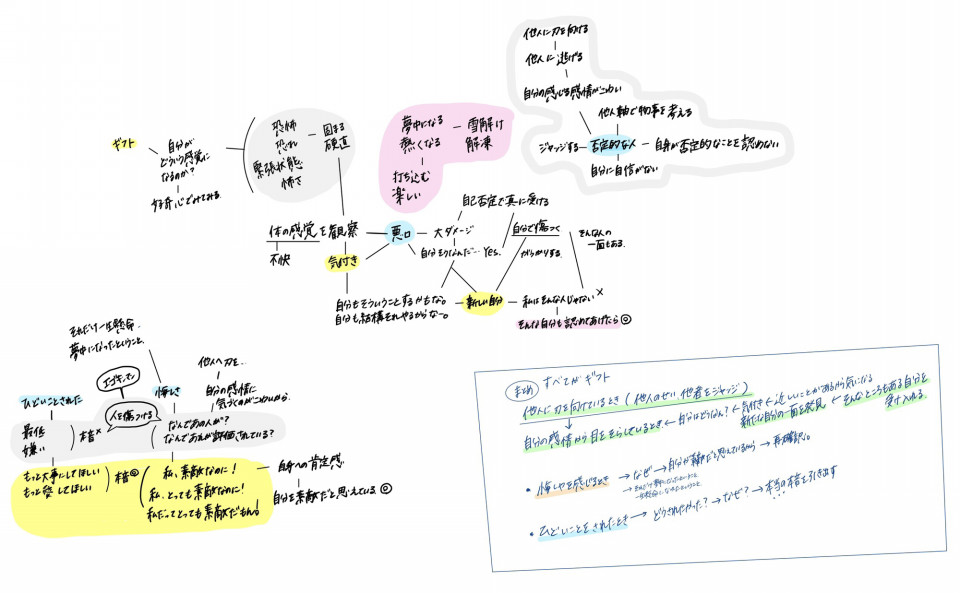 他人に刃を向ける
他人に逃げる
自分の感じる感情がこわい
他人軸で物事を考える
ジャッジする
否定的な人
自身が否定的なことを認めない
自分に自信がない
ギフト
自分が
どういう感覚に
なるのか?
好奇心でみてみる
恐怖
恐れ
緊張状態
怖さ
固まる
硬直
夢中になる
熱くなる
雪解け
解凍
打ち込む
楽しい
体の感覚を観察
不快
気付き
悪口
大ダメージ
自己否定で真に受ける
自分そうなんだ… Yes.
自分で傷つく
がっかりする
そんな人の
一面もある.
自分もそういうことするかもな。
自分も結構それやるからな〜。
新しい自分
私はそんな人じゃない ×
そんな自分も認めてあげたら◎
それだけ一生懸命.
夢中になったということ.
ひどいことされた
エゴギンマン
人を傷つける
悔しさ
他人へ刃を…
自分の感情に
気づくのがこわいから.
最低
嫌い
本音×
なんであの人が?
なんであれが評価されている?
もっと大事にしてほしい
もっと愛してほしい
本音◎
私、素敵なのに!
私、とっても素敵なのに!
私だってとっても素敵だもん!
自身への肯定感.
自分を素敵だと思えている◎
まとめ すべてがギフト
他人に刃を向けているとき (他人のせい,他者をジャッジ)
自分の感情から目をそらしているとき ← 自分はどうなん? ← 気付き ← 近しいことがあるから気になる
新たな自分の一面を発見 ← そんなところもある自分を
受け入れる.
• 悔しさを感じるとき → なぜ → 自分が素敵だと思えているから → 再確認。
• ひどいことをされたとき → どうされたかった? → なぜ? → 本当の本音を引き出す